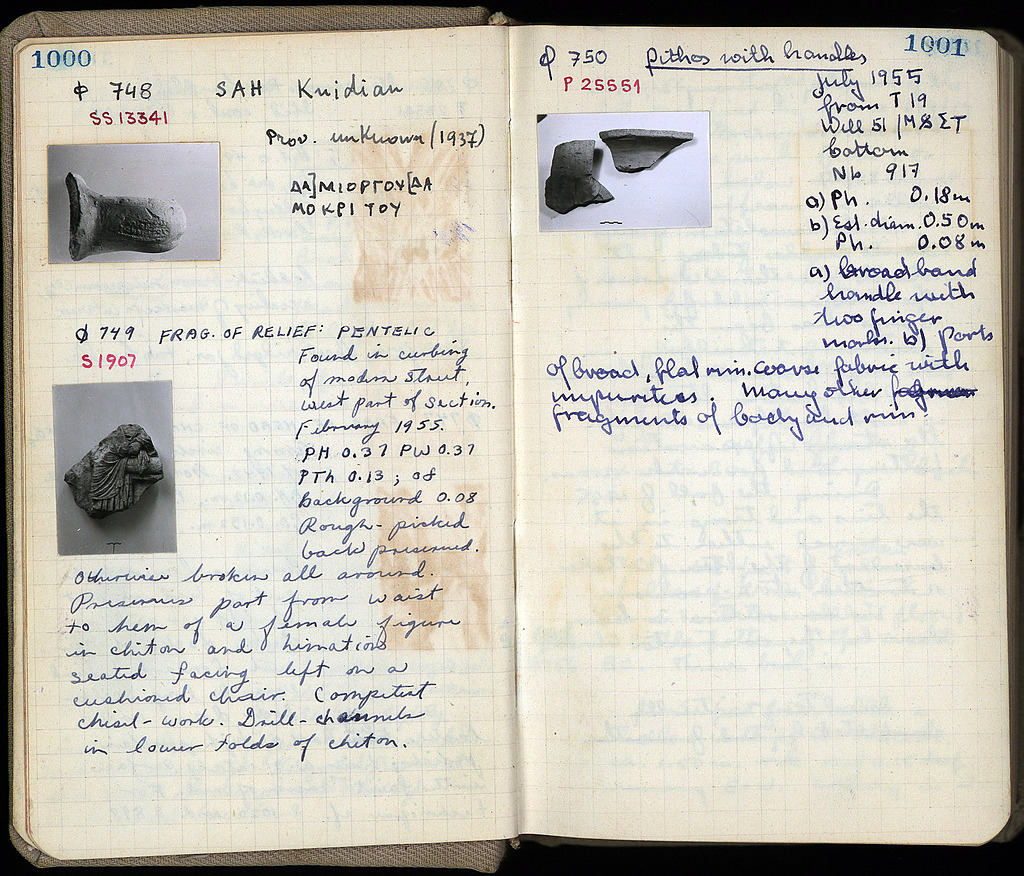 1000
Φ 748 SAH Knidian
SS 13341
Prov. unknown (1937)
ΔΑ]ΜΙΟΡΓΟΥ[ΔΑ
ΜΟΚΡΙΤΟΥ
Φ 749 FRAG. OF RELIEF: PENTELIC
S 1907
Found in curbing
of modern street,
west part of section.
February 1955.
PH 0.37 PW 0.37
PTh 0.13 ; of
Background 0.08
Rough-picked
back preserved.
Otherwise broken all around.
Preserves part from waist
to hem of a female figure
in chiton and himation
seated facing left on a
cushioned chair. Competent
chisel-work. Drill-channels
in lower folds of chiton.
1001
Φ 750 pithos with handles
P 25551
July 1955
from T 19
Well 51/ΜΣΤ
bottom
Nb 917
a) Ph. 0.18m
b) Est. diam. 0.50m
Ph. 0.08m
a) broad band
handle with
two finger
marks. b) Parts
of broad, flat rim. coarse fabric with
impurities. Many other
fragments of body and rim